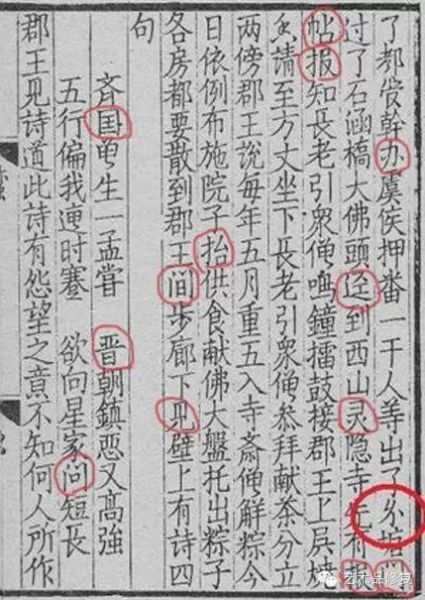 了都管幹办虞侯押番一干人等出了塘门
过了石涵橋大佛頭迳到西山灵隐寺先有报
帖报知長老引衆僧鳴鐘擂鼓接郡王上殿燒
香請至方丈坐下長老引衆僧参拜献茶分立
两傍郡王說每年五月重五入寺斋僧解粽今
日依例布施院子抬供食献佛大盤托出粽子
各房都要散到郡王间步廊下见壁上有詩四
句
齐国曾生一孟嘗　晋朝鎮恶又高強
五行偏我遭时蹇　欲向星家问短長
郡王见詩道此詩有怨望之意不知何人所作
艺术品修复